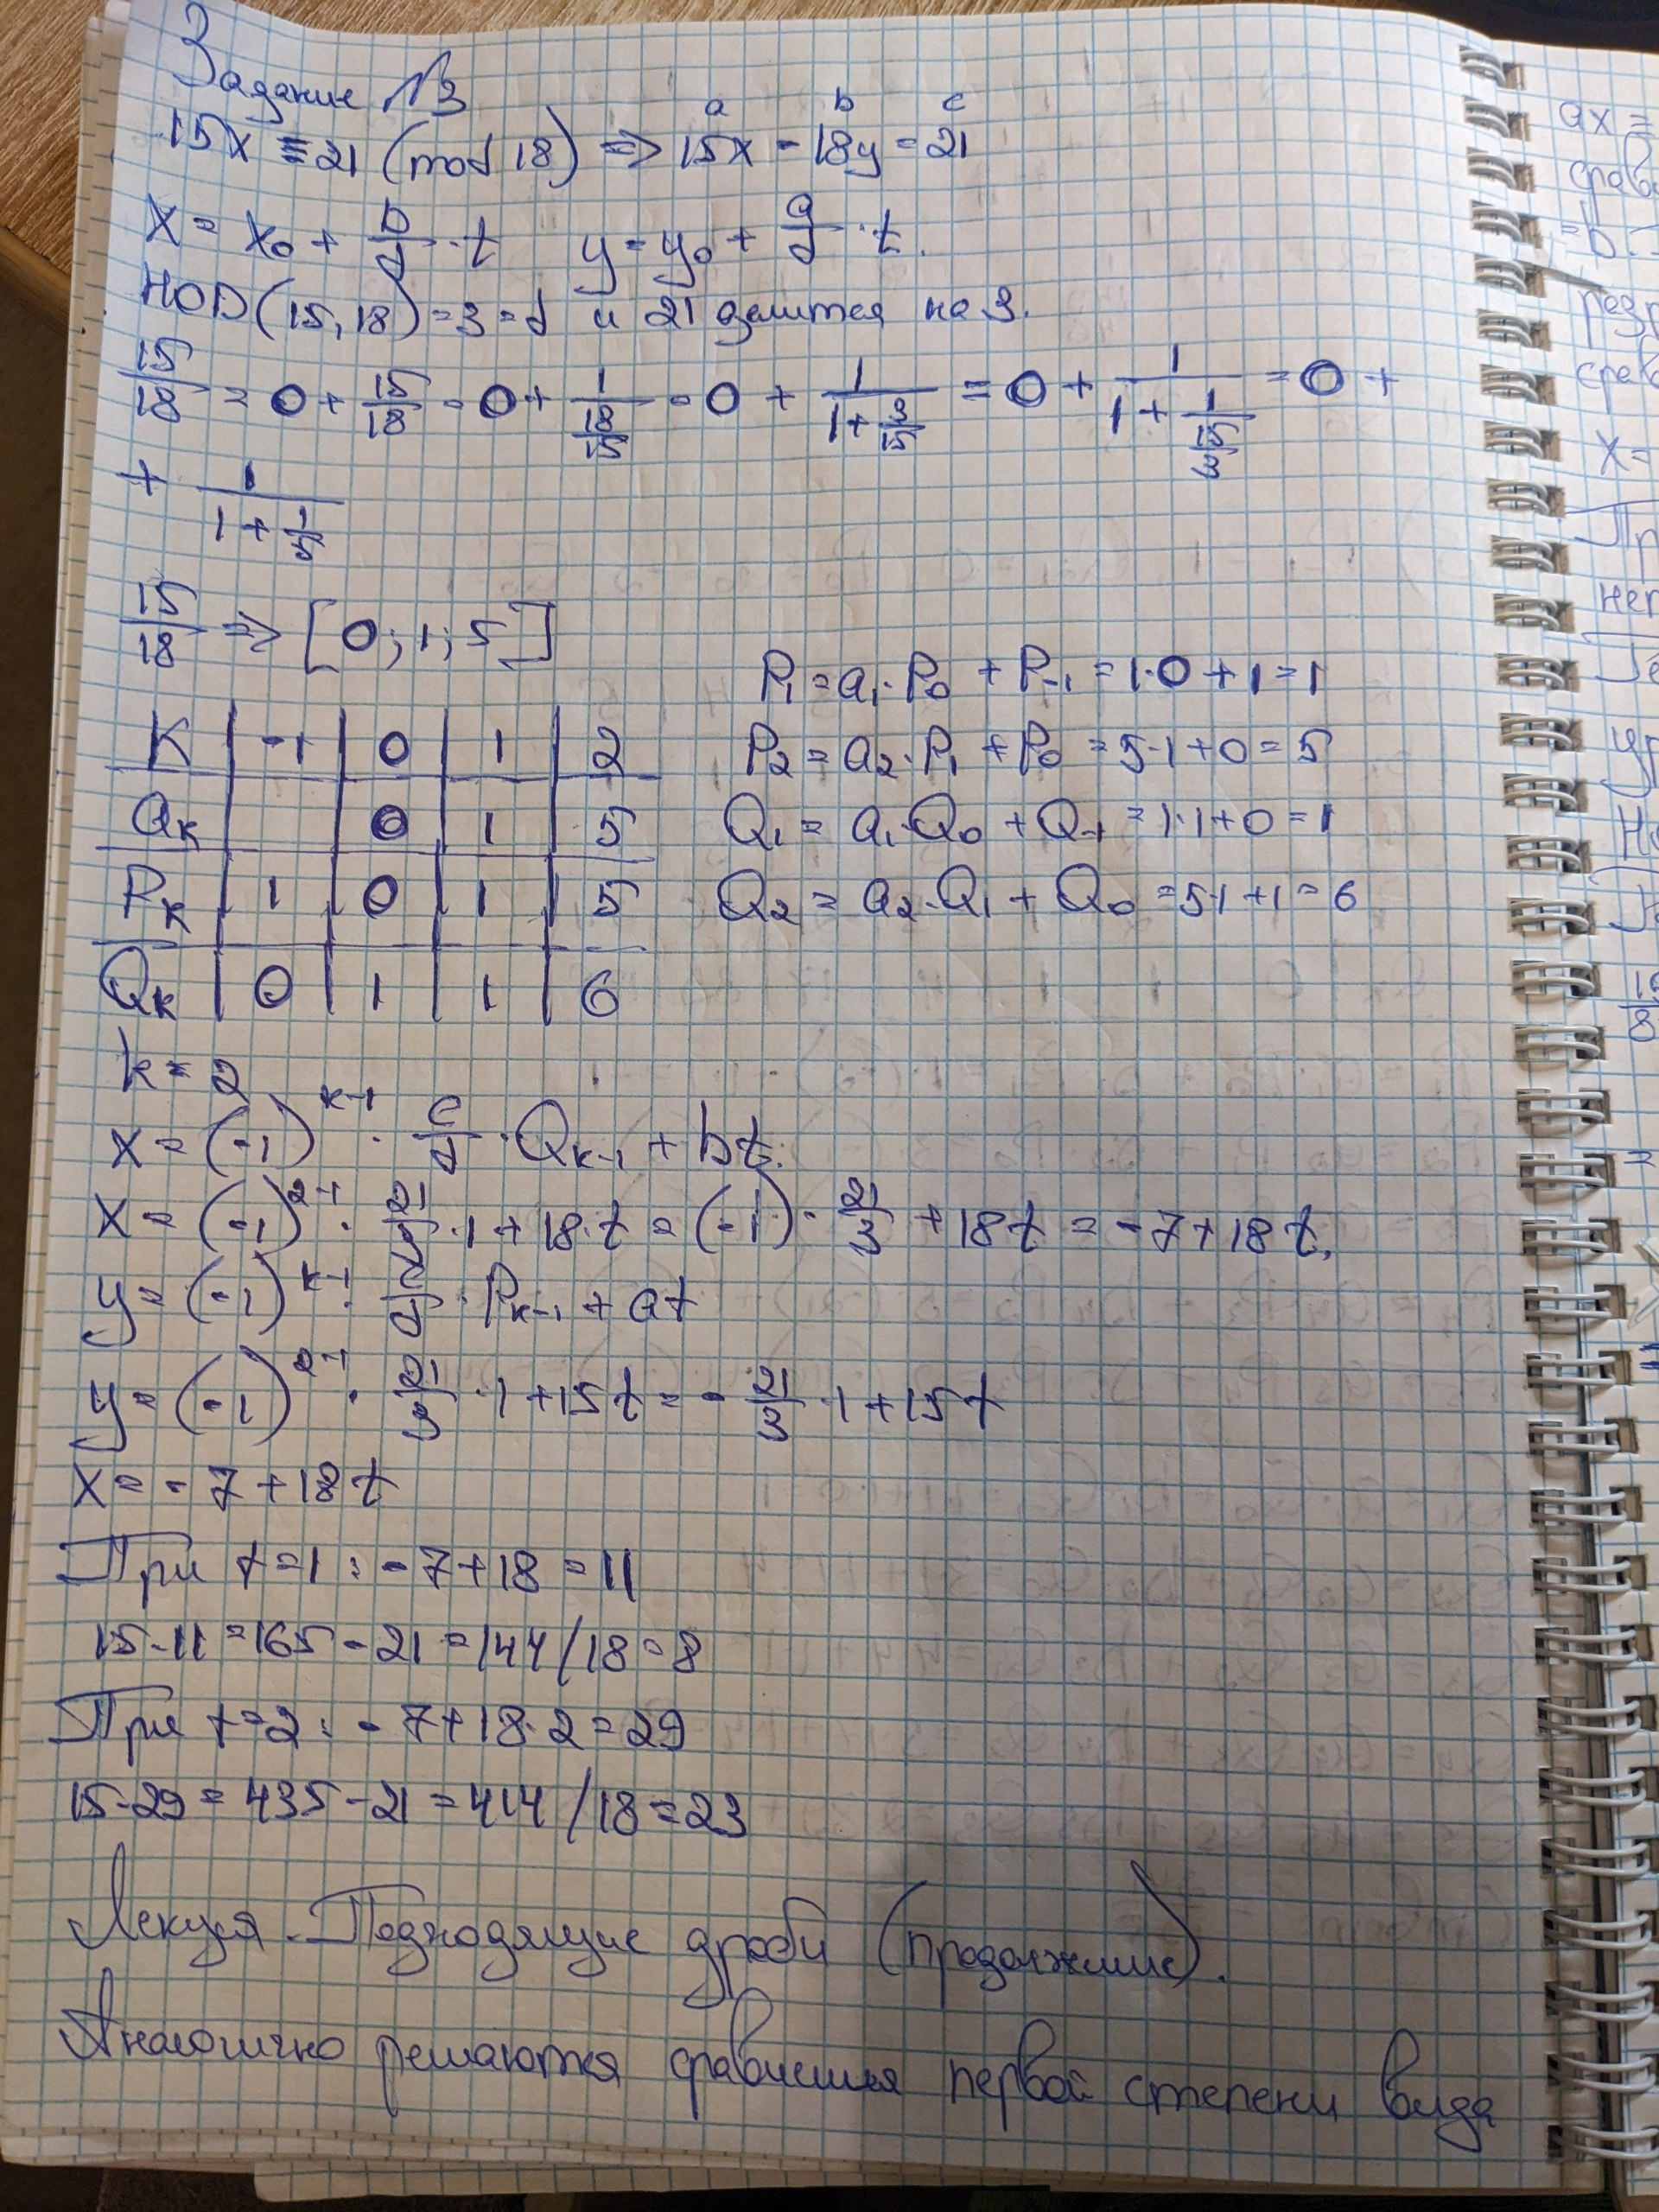 Задание №3
a b c
15x ≡ 21 (mod 18) => 15x - 18y = 21
x = x₀ + b/d · t y = y₀ + a/d · t.
НОД(15, 18) = 3 = d и 21 делится на 3.
15/18 = 0 + 15/18 = 0 + 1/(18/15) = 0 + 1/(1 + 3/15) = 0 + 1/(1 + 1/(15/3)) = 0 +
+ 1/(1 + 1/5)
15/18 => [0; 1; 5]
P₁ = a₁·P₀ + P₋₁ = 1·0 + 1 = 1
K | -1 | 0 | 1 | 2
P₂ = a₂·P₁ + P₀ = 5·1 + 0 = 5
Qк | | 0 | 1 | 5
Q₁ = a₁·Q₀ + Q₋₁ = 1·1 + 0 = 1
Pк | 1 | 0 | 1 | 5
Q₂ = a₂·Q₁ + Q₀ = 5·1 + 1 = 6
Qк | 0 | 1 | 1 | 6
k = 2
x = (-1)^(к-1) · c/d · Qк₋₁ + bt.
x = (-1)^(2-1) · 21/3 · 1 + 18·t = (-1) · 21/3 + 18t = -7 + 18t.
y = (-1)^(к-1) · c/d · Pк₋₁ + at
y = (-1)^(2-1) · 21/3 · 1 + 15t = - 21/3 · 1 + 15t
x = -7 + 18t
При t=1: -7 + 18 = 11
15·11 = 165 - 21 = 144/18 = 8
При t=2: -7 + 18·2 = 29
15·29 = 435 - 21 = 414/18 = 23
Лекция. Подходящие дроби (продолжение).
Аналогично решаются сравнения первой степени вида
ax =
= b
x =